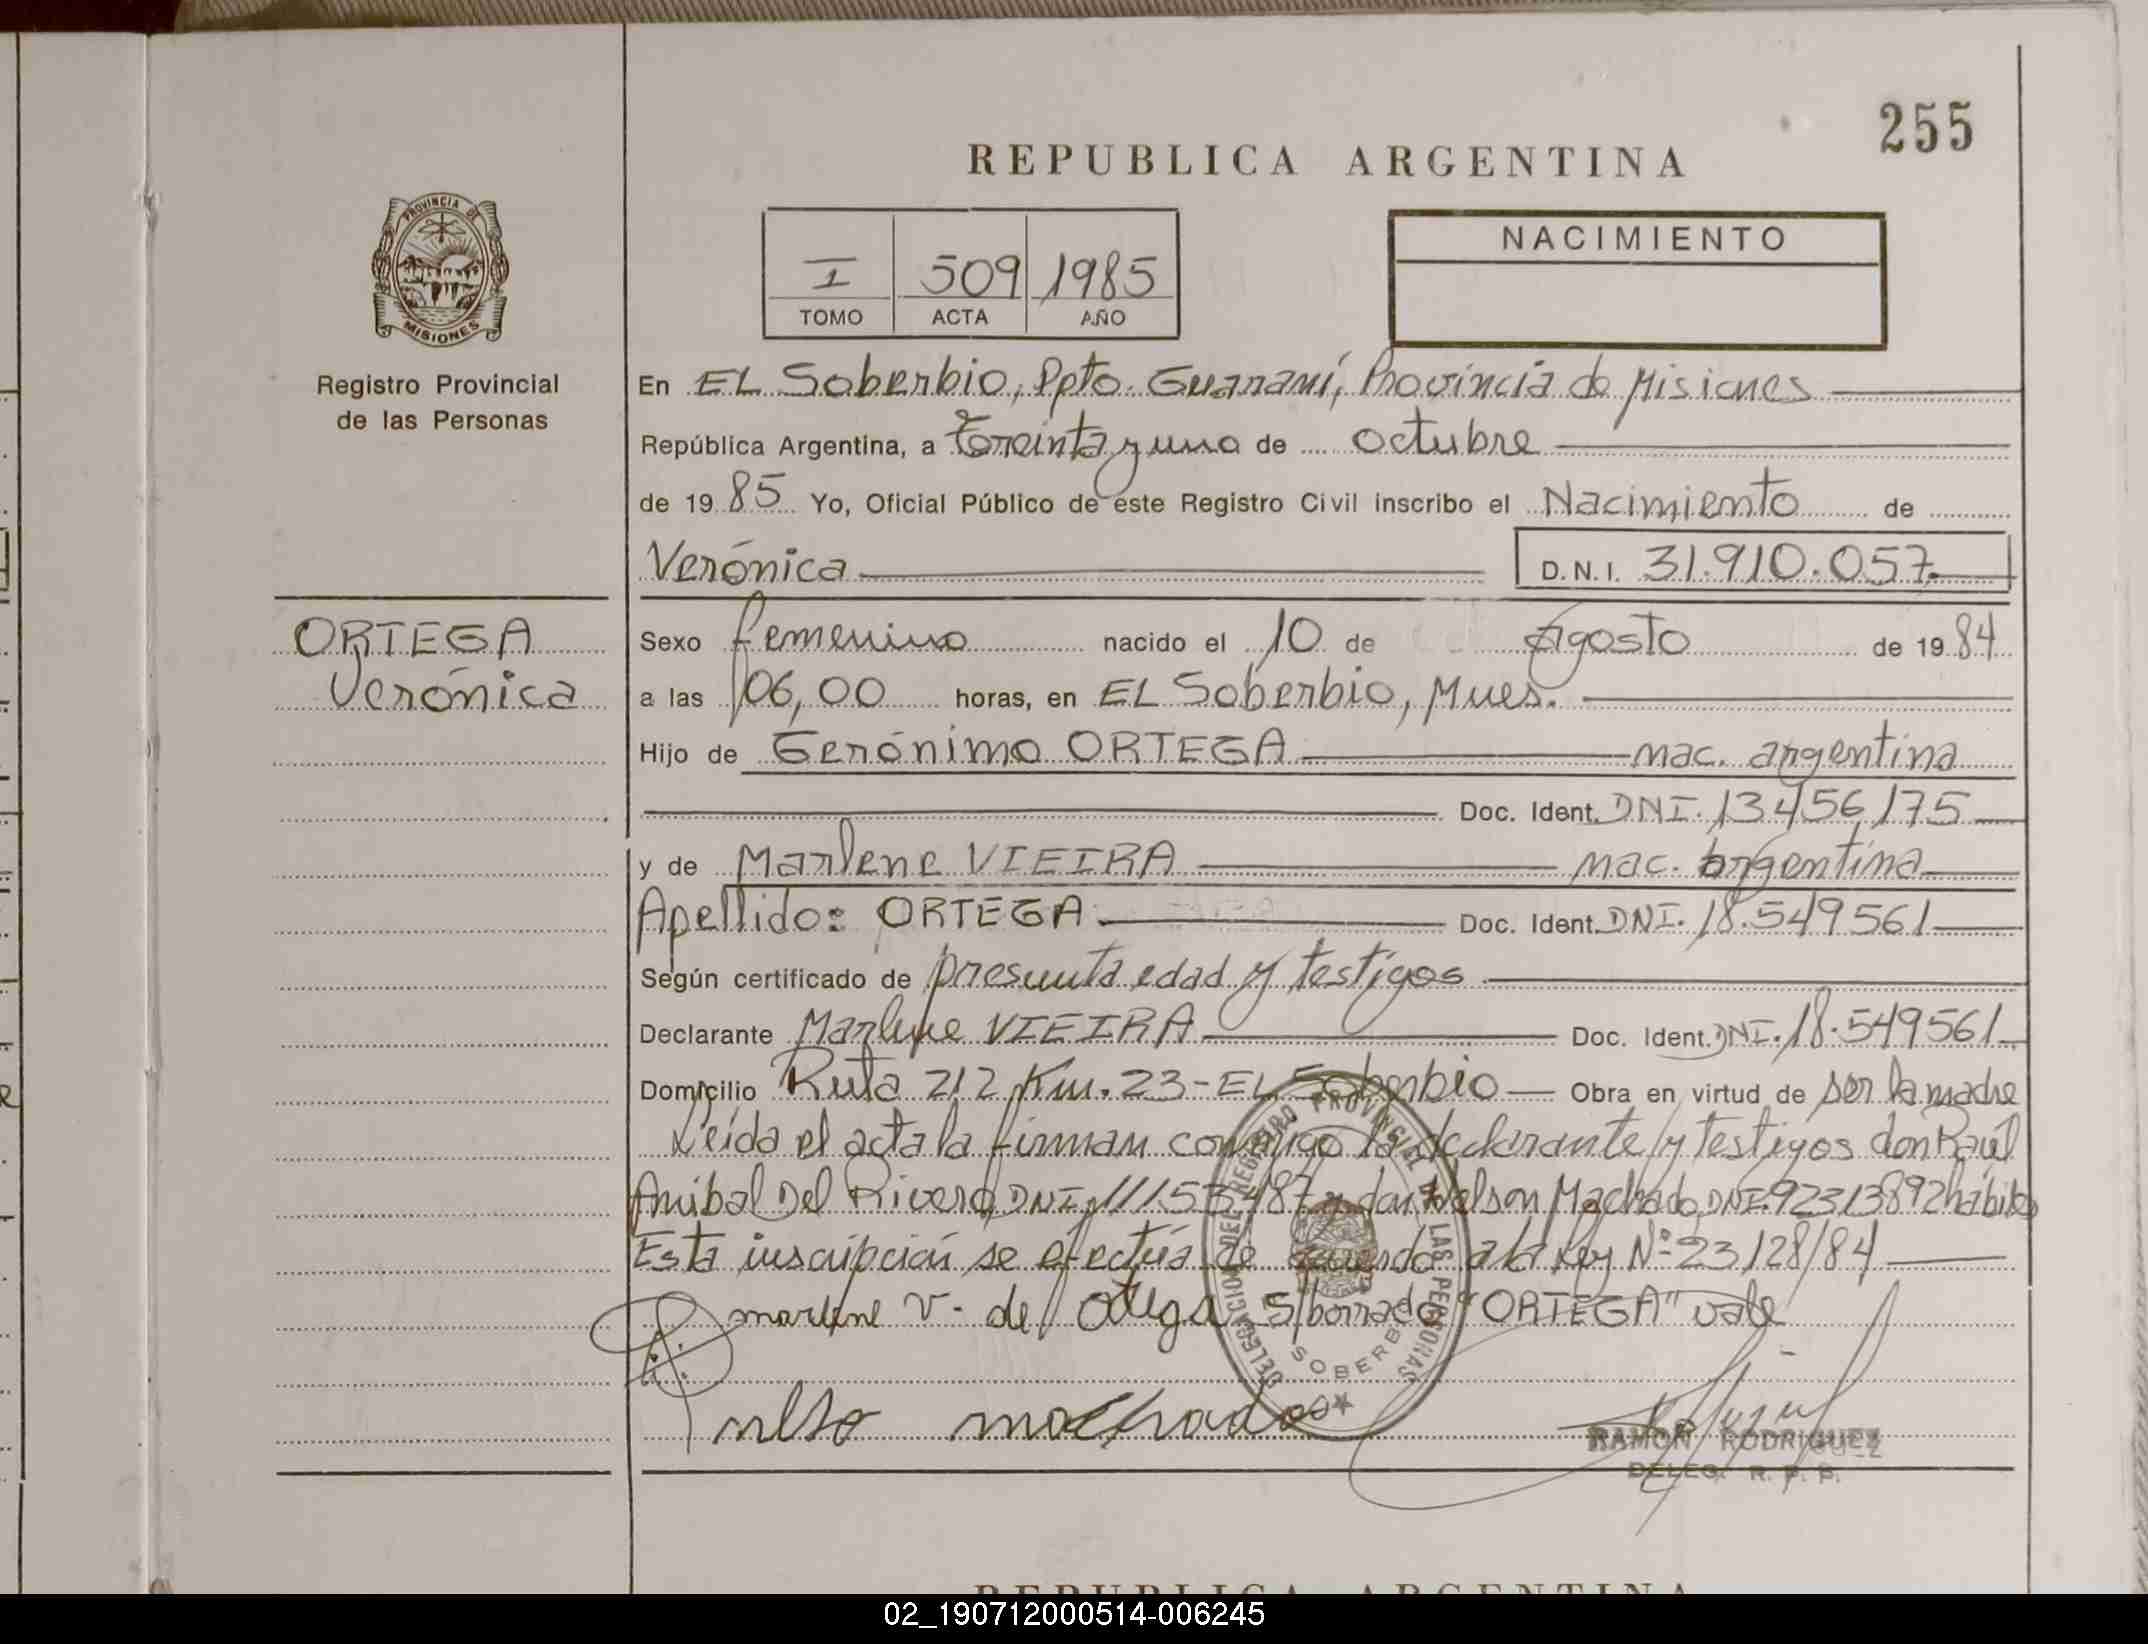 255
REPUBLICA ARGENTINA
PROVINCIA DE
MISIONES
Registro Provincial
de las Personas
I 509 1985
TOMO ACTA AÑO
NACIMIENTO
En EL Soberbio, Dpto. Guaraní, Provincia de Misiones
República Argentina, a Treinta y uno de octubre
de 19 85 Yo, Oficial Público de este Registro Civil inscribo el Nacimiento de
Verónica D.N.I. 31.910.057
ORTEGA
Verónica
Sexo femenino nacido el 10 de Agosto de 19 84
a las 06,00 horas, en EL Soberbio, Mnes.
Hijo de Gerónimo ORTEGA nac. argentina
Doc. Ident. DNI. 13456175
y de Marlene VIEIRA nac. argentina
Apellido: ORTEGA Doc. Ident. DNI. 18.549561
Según certificado de presunta edad y testigos
Declarante Marlene VIEIRA Doc. Ident. DNI. 18.549561
Domicilio Ruta 212 Km. 23 - EL Soberbio Obra en virtud de ser la madre
Leída el acta la firman conmigo la declarante y testigos don Raúl
Anibal Del Rivero DNI. 11153487 y don Nelson Machado DNI. 92313892 hábiles
Esta inscripción se efectúa de acuerdo a la Ley Nº 23128/84
marlene V. de Ortega S/borrado "ORTEGA" vale
DELEGACION DEL REGISTRO PROVINCIAL DE LAS PERSONAS
SOBERBIO
nelso machado
RAMON RODRIGUEZ
DELEG. R. P. P.
REPUBLICA ARGENTINA
02_190712000514-006245